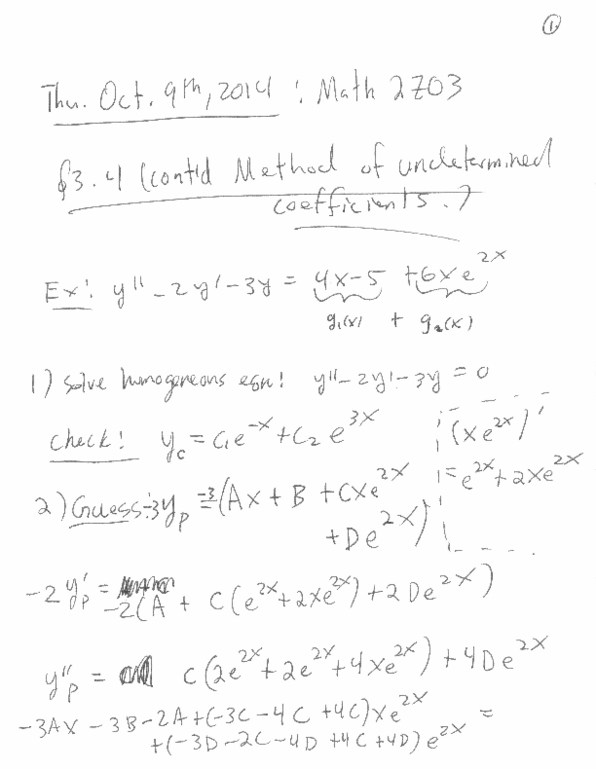 ①
Thu. Oct. 9th, 2014 : Math 2Z03
§3.4 (cont'd Method of undetermined
coefficients.)
Ex: y'' - 2y' - 3y = 4x-5 + 6xe^{2x}
g₁(x) + g₂(x)
1) solve homogeneous eqn: y'' - 2y' - 3y = 0
Check! y_c = c₁e^{-x} + c₂e^{3x}
(xe^{2x})'
= e^{2x} + 2xe^{2x}
2) Guess: -3y_p = -3(Ax + B + Cxe^{2x}
+ De^{2x})
-2y'_p = -2(A + C(e^{2x} + 2xe^{2x}) + 2De^{2x})
y''_p = C(2e^{2x} + 2e^{2x} + 4xe^{2x}) + 4De^{2x}
-3Ax - 3B - 2A + (-3C - 4C + 4C)xe^{2x} =
+ (-3D - 2C - 4D + 4C + 4D)e^{2x}